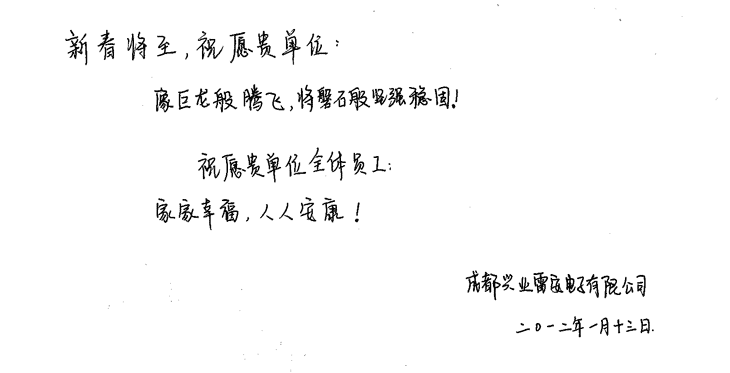 新春将至,祝愿贵单位:
像巨龙般腾飞,将磐石般坚强稳固!
祝愿贵单位全体员工:
家家幸福,人人安康!
成都兴业雷安电子有限公司
二0一二年一月十三日.